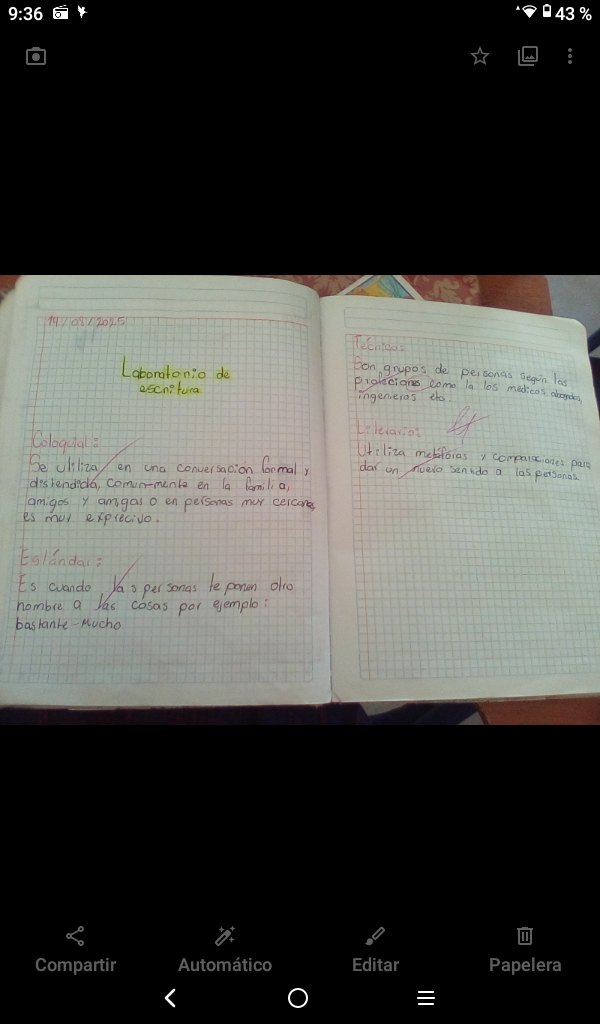 9:36
43 %
19/03/2025
Laboratorio de
escritura
Coloquial:
Se utiliza en una conversación formal y
distendida, comun-mente en la familia,
amigos y amigas o en personas muy cercanas
es muy exprecivo.
Estándar:
Es cuando las personas le ponen otro
nombre a las cosas por ejemplo:
bastante-Mucho
Técnico:
Son grupos de personas según las
profeciones como la los medicos, abogados,
ingenieros etc.
Literario:
Utiliza metáforas y comparaciones para
dar un nuevo sentido a las personas.
Compartir
Automático
Editar
Papelera